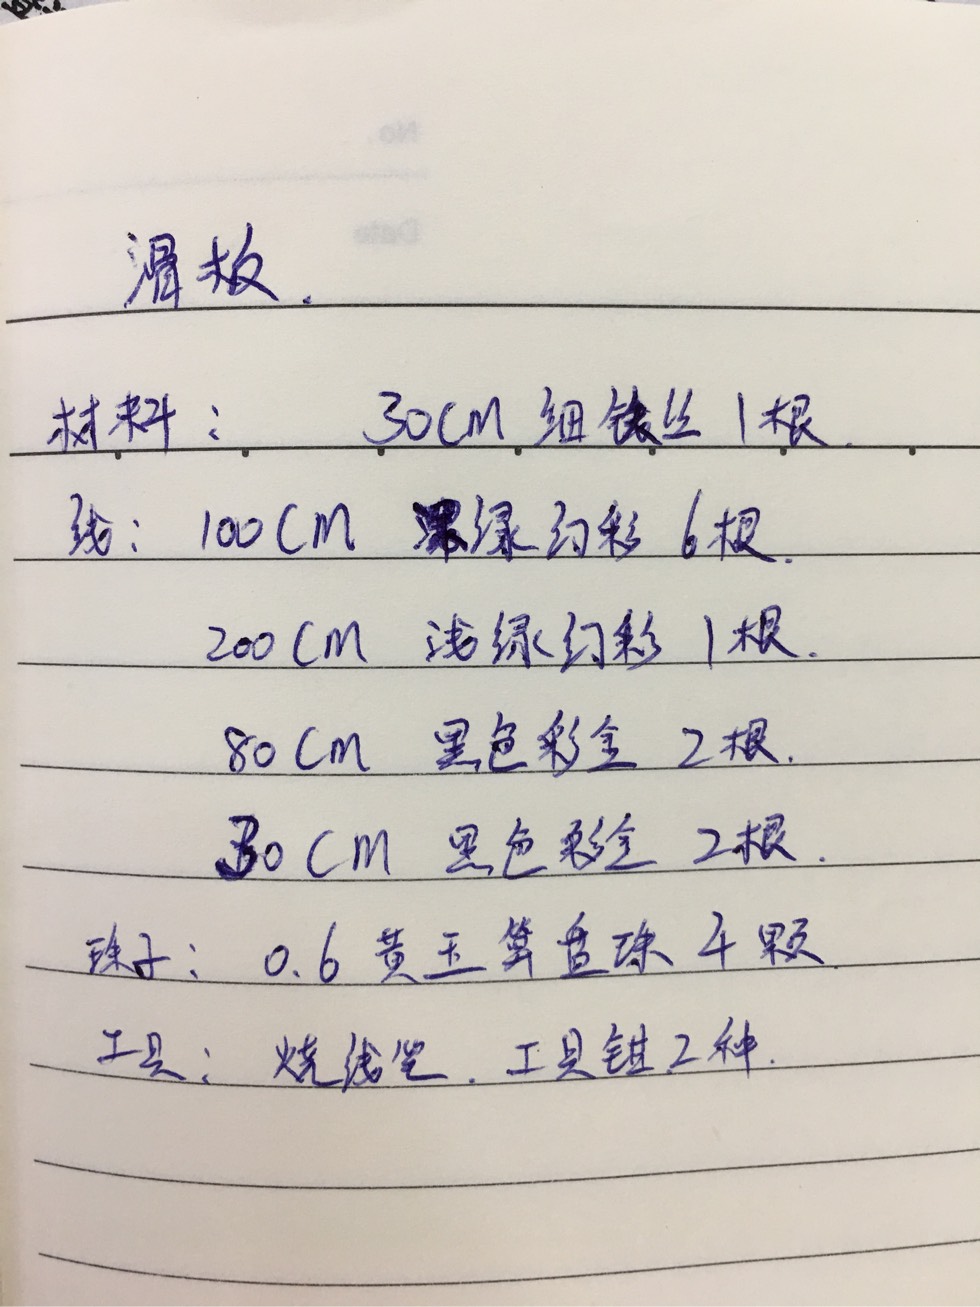 滑板.
材料: 30CM 细铁丝 1根.
线: 100CM 深绿幻彩 6根.
200CM 浅绿幻彩 1根.
80CM 黑色彩金 2根.
30CM 黑色彩金 2根.
珠子: 0.6 黄玉算盘珠 4颗
工具: 烧线笔. 工具钳2种.